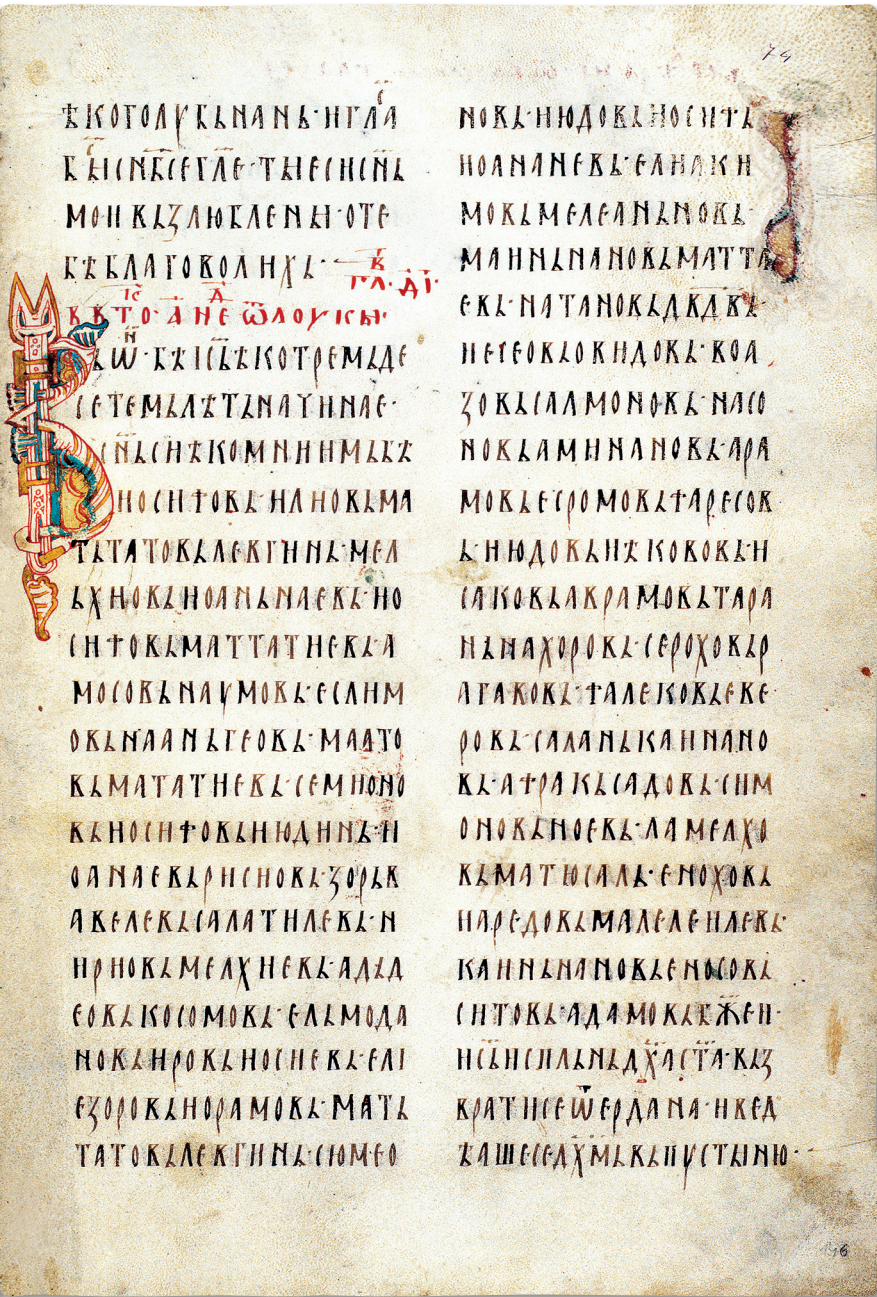 74
ѢКОГОЛУБЬНАНЬ·ИГЛА
БЫСНБСЕГЛЕ·ТЫЕСИСНЬ
МОИВЬЗЛЮБЛЕНЫ·ОТЕ
БѢБЛАГОВОЛИХЬ·
В
ГЛ·ДІ·
ВЬТО·АНЕѾЛОУКЫ·
ВЬѠН·БѢІСЬѢКОТРЕМЬДЕ
СЕТЕМЬЛѢТЬНАУИНАЕ·
СНЬСИѢКОМНИИМЬБѢ
ИОСИФОВЬ·ИЛИОВЬМА
ТЬТАТОВЬЛЕВГИИНЬ·МЕЛ
ЬХИОВЬИОАНЬНАЕВЬ·ИО
СИФОВЬМАТТАТИЕВЬ·А
МОСОВЬНАУМОВЬ·ЕСЛИМ
ОВЬНААНЬГЕОВЬ·МААТО
ВЬМАТАТИЕВЬ·СЕМИОНО
ВЬИОСИФОВЬИЮДИНЬ·И
ОАНАЕВЬРИСИОВЬ·ЗОРЬВ
АВЕЛЕВЬСАЛАТИЛЕВЬ·Н
ИРИОВЬМЕЛХИЕВЬ·АДЬД
ЕОВЬКОСОМОВЬ·ЕЛЬМОДА
НОВЬИРОВЬИОСИЕВЬ·ЕЛІ
ЕЗОРОВЬИОРАМОВЬ·МАТЬ
ТАТОВЬЛЕВГИИНЬ·СЮМЕО
НОВЬ·ИЮДОВЬИОСИФЬ
ИОАНАНЕВЬ·ЕЛИАКИ
МОВЬМЕЛЕАНЬНОВЬ·
МАИНЬНАНОВЬМАТТА
ЕВЬ·НАТАНОВЬДВДВЬ·
ИЕСЕОВЬОВИДОВЬ·ВОА
ЗОВЬСАЛМОНОВЬ·НАСО
НОВЬАМИНАНОВЬ·АРА
МОВЬЕСРОМОВЬФАРЕСОВ
Ь·ИЮДОВЬИѢКОВОВЬИ
САКОВЬАВРАМОВЬТАРА
НЬНАХОРОВЬ·СЕРОХОВЬР
АГАВОВЬ·ФАЛЕКОВЬЕВЕ
РОВЬ·САЛАНЬКАИНАНО
ВЬ·АФРАКЬСАДОВЬ·СИМ
ОНОВЬНОЕВЬ·ЛАМЕЛХО
ВЬМАТЮСАЛЬ·ЕНОХОВЬ
ИАРЕДОВЬМАЛЕЛЕИЛЕВЬ·
КАИНЬНАНОВЬЕНОСОВЬ
СИТОВЬ·АДАМОВЬБЖЕИ·
ИСЬИСПЛЬНЬДХАСТА·ВЬЗ
ВРАТИСЕѾЕРДАНА·ИВЕД
ѢАШЕСЕДХМЬВЬПУСТЫНЮ·